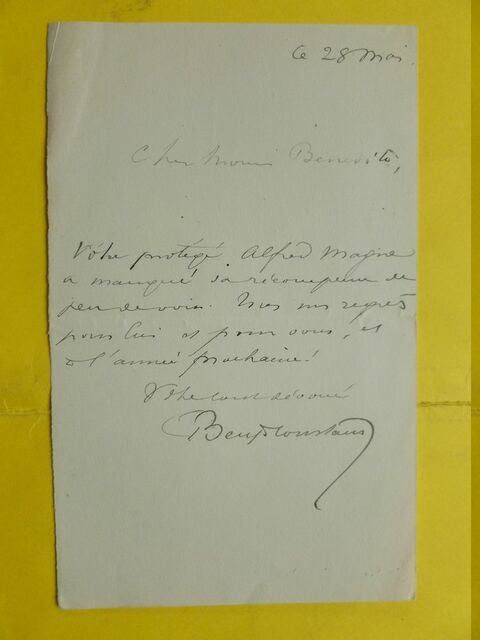 Ce 28 Mai.
Cher Monsieur Benezit,
Votre protégé Alfred Magne
a manqué sa récompense de
peu de voix. Tous mes regrets
pour lui et pour vous, et
à l'année prochaine!
Votre tout dévoué
Benj Constant